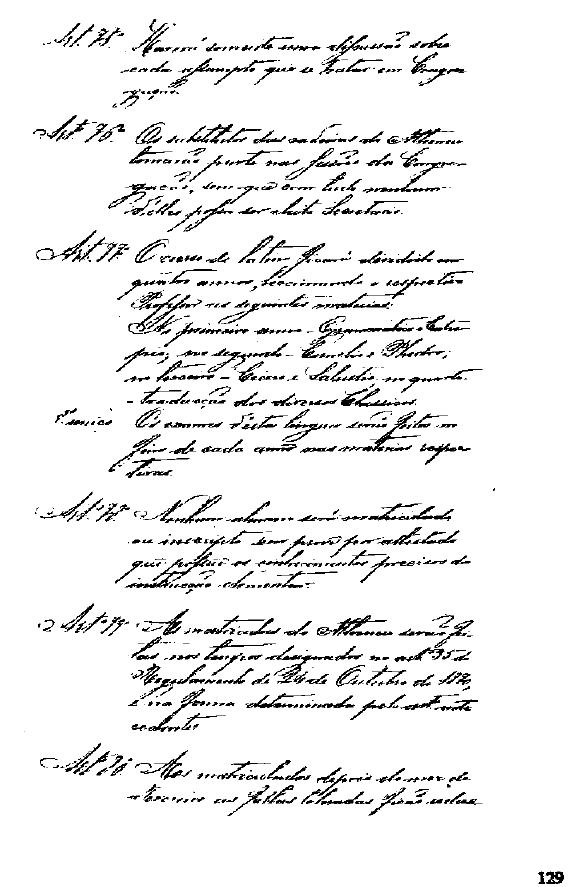 Art. 75º Haverá somente uma discussão sobre
cada assumpto que se tratar em Congre
gação.
Art. 76º Os substitutos das cadeiras do Atheneu
tomarão parte nas sessões da Congre
gação, sem que com tudo nenhum
d'elles possa ser eleito Secretario.
Art. 77 O curso de latim ficará dividido em
quatro annos, leccionando o respectivo
Professor as seguintes materias:
No primeiro anno - e Eutro
pio, no segundo - Cornelio e Phedro,
no terceiro - Cicero e Salustio, no quarto
- traducção dos diversos Classicos.
§ unico Os exames d'esta lingua serão feitos no
fim de cada anno nas materias respec
tivas.
Art. 78º Nenhum alumno será matriculado
ou inscripto sem provar por attestado
que possue os conhecimentos precisos da
instrucção elementar.
Art. 79 As matriculas do Atheneu serão fei
tas nos tempos designados no art. 35 do
Regulamento de 24 de Outubro de 1870,
e na forma determinada pelo art. ante
cedente.
Art. 80 Aos matriculados depois do mez de
Fevereiro as faltas
129